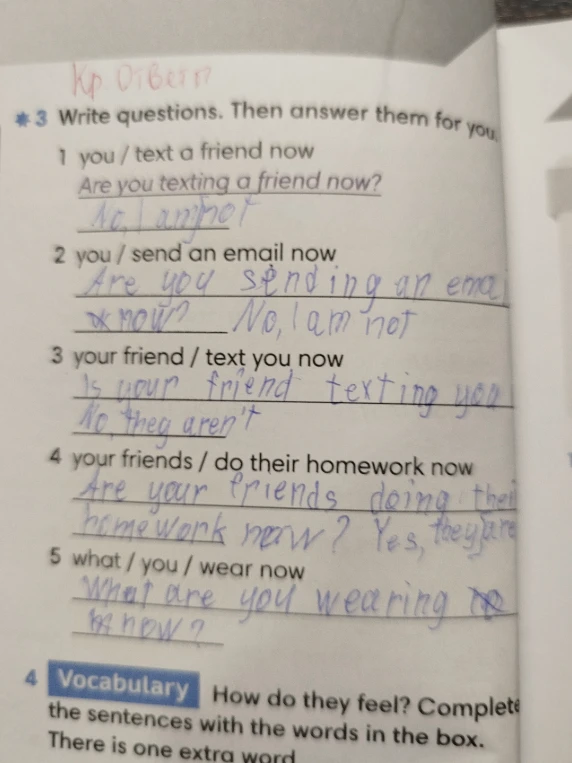 Кр Овеrп
* 3 Write questions. Then answer them for you.
1 you / text a friend now
Are you texting a friend now?
No, I am not
2 you / send an email now
Are you sending an emai
now? No, I am not
3 your friend / text you now
Is your friend texting you
No, they aren't
4 your friends / do their homework now
Are your friends doing thei
homework now? Yes, they are
5 what / you / wear now
What are you wearing
now?
4 Vocabulary How do they feel? Complete
the sentences with the words in the box.
There is one extra word